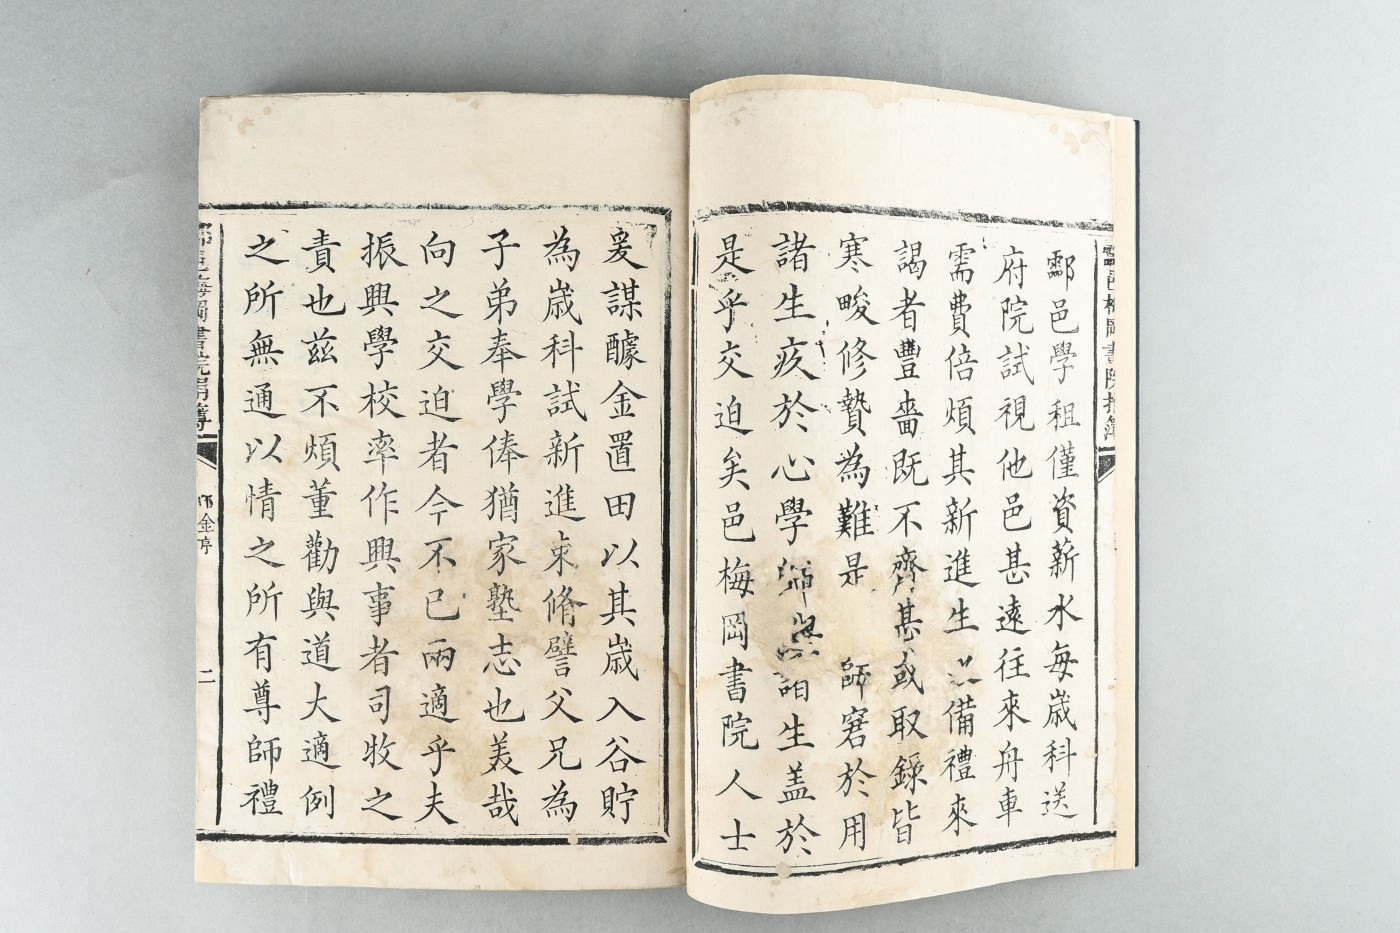 酃邑學租僅資薪水每歲科送
府院試視他邑甚遠往來舟車
需費倍煩其新進生備禮來
謁者豐嗇既不齊甚或取錄皆
寒畯修贄為難是師窘於用
諸生疚於心學生盖於
是乎交迫矣邑梅岡書院人士
爰謀醵金置田以其歲入谷貯
為歲科試新進束脩譬父兄為
子弟奉學俸猶家塾志也美哉
向之交迫者今不已兩適乎夫
振興學校率作興事者司牧之
責也兹不煩董勸與道大適例
之所無通以情之所有尊師禮
梅岡書院
二